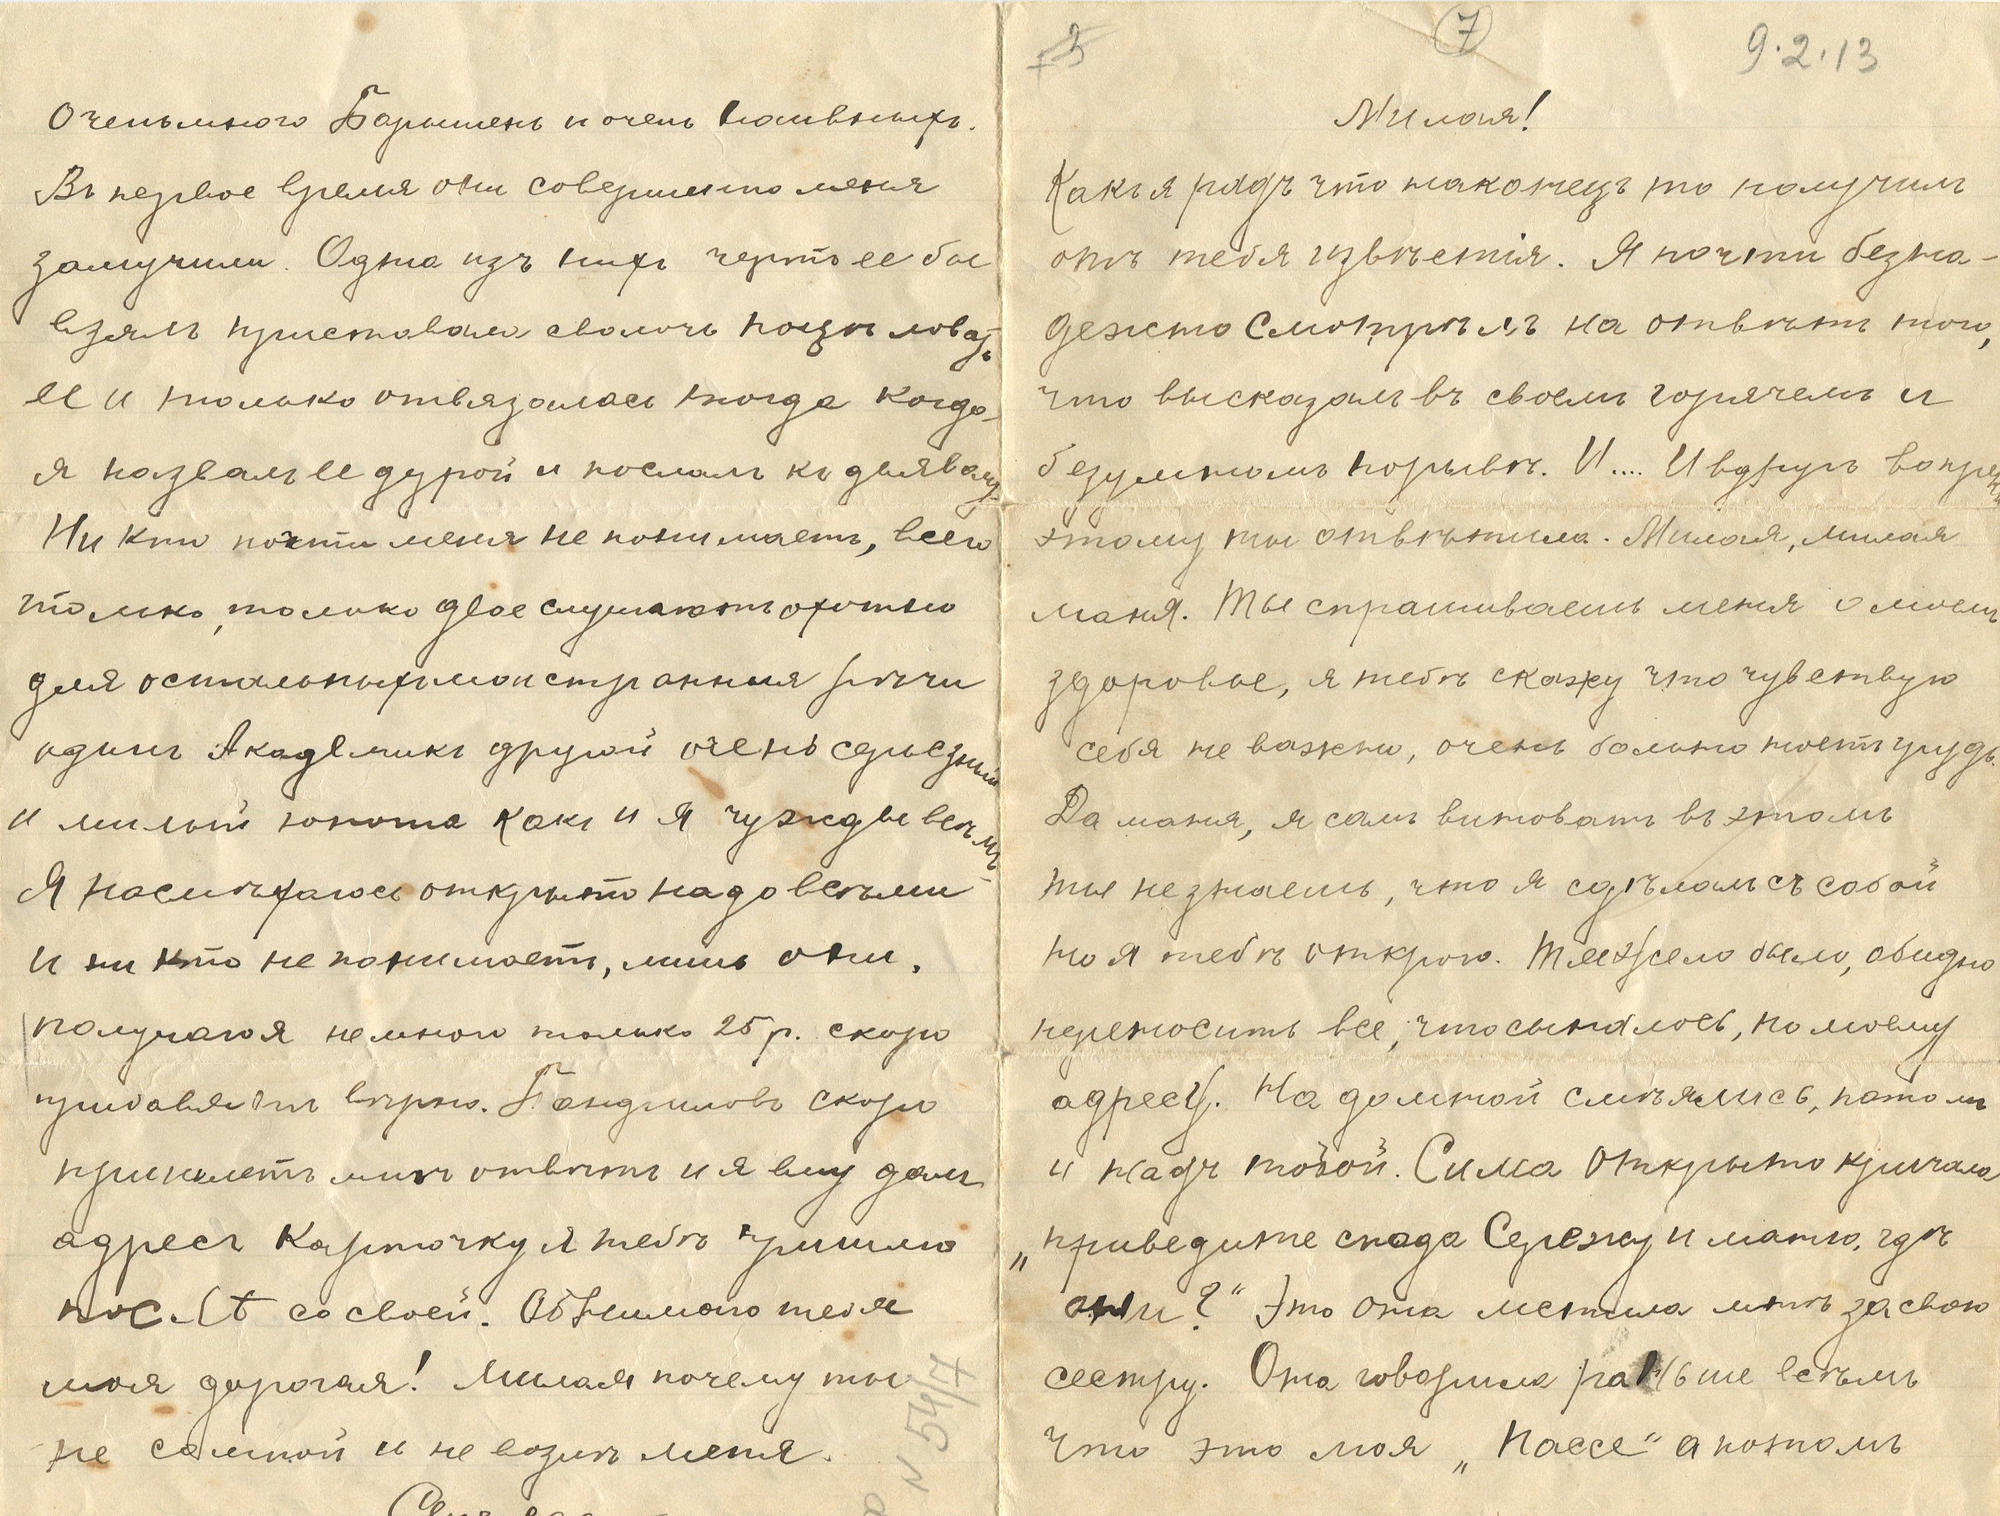 7
9.2.13
Милая!
Какъ я радъ что наконецъ то получилъ
отъ тебя извѣстія. Я почти безна-
дежно смотрѣлъ на отвѣтъ того,
что высказалъ въ своемъ горячемъ и
безумномъ порывѣ. И.... И вдругъ вопреки
этому ты отвѣтила. Милая, милая
маня. Ты спрашиваешь меня о моемъ
здоровье, я тебѣ скажу что чувствую
себя не важно, очень больно ноетъ грудь.
Да маня, я самъ виноватъ въ этомъ
ты не знаешь, что я сдѣлалъ съ собой
но я тебѣ открою. Тяжело было, обидно
переносить все, что сыпалось, по моему
адресу. На до мной смѣялись, потомъ
и надъ тобой. Сима открыто кричала
„приведите сюда Сережу и маню, гдѣ
они?“ Это она мстила мнѣ за свою
сестру. Она говорила раньше всѣмъ
что это моя „Пассе“ а потомъ
Очень много Барышень и очень наивныхъ.
Въ первое время они совершенно меня
замучили. Одна изъ нихъ чертъ ее бы
взялъ приставала сволочь поцѣловать
ее и только отвязалась тогда когда
я назвалъ ее дурой и послалъ къ дьяволу
Ни кто почти меня не понимаетъ, всего
только, только двое слушаютъ охотно
для остальныхъ мои странныя рѣчи
одинъ Академикъ другой очень серьезный
и милый юноша какъ и я чужды всѣмъ
Я насмѣхаюсь открыто надо всѣми
и ни кто не понимаетъ, лишь они.
получаю я не много только 25 р. скоро
прибавятъ вѣрно. Бандиловъ скоро
пришлетъ мнѣ отвѣтъ и я ему далъ
адресъ Карточку я тебѣ пришлю
послѣ со своей. Обнимаю тебя
моя дорогая! Милая почему ты
не со мной и не возлѣ меня.
N 54/7